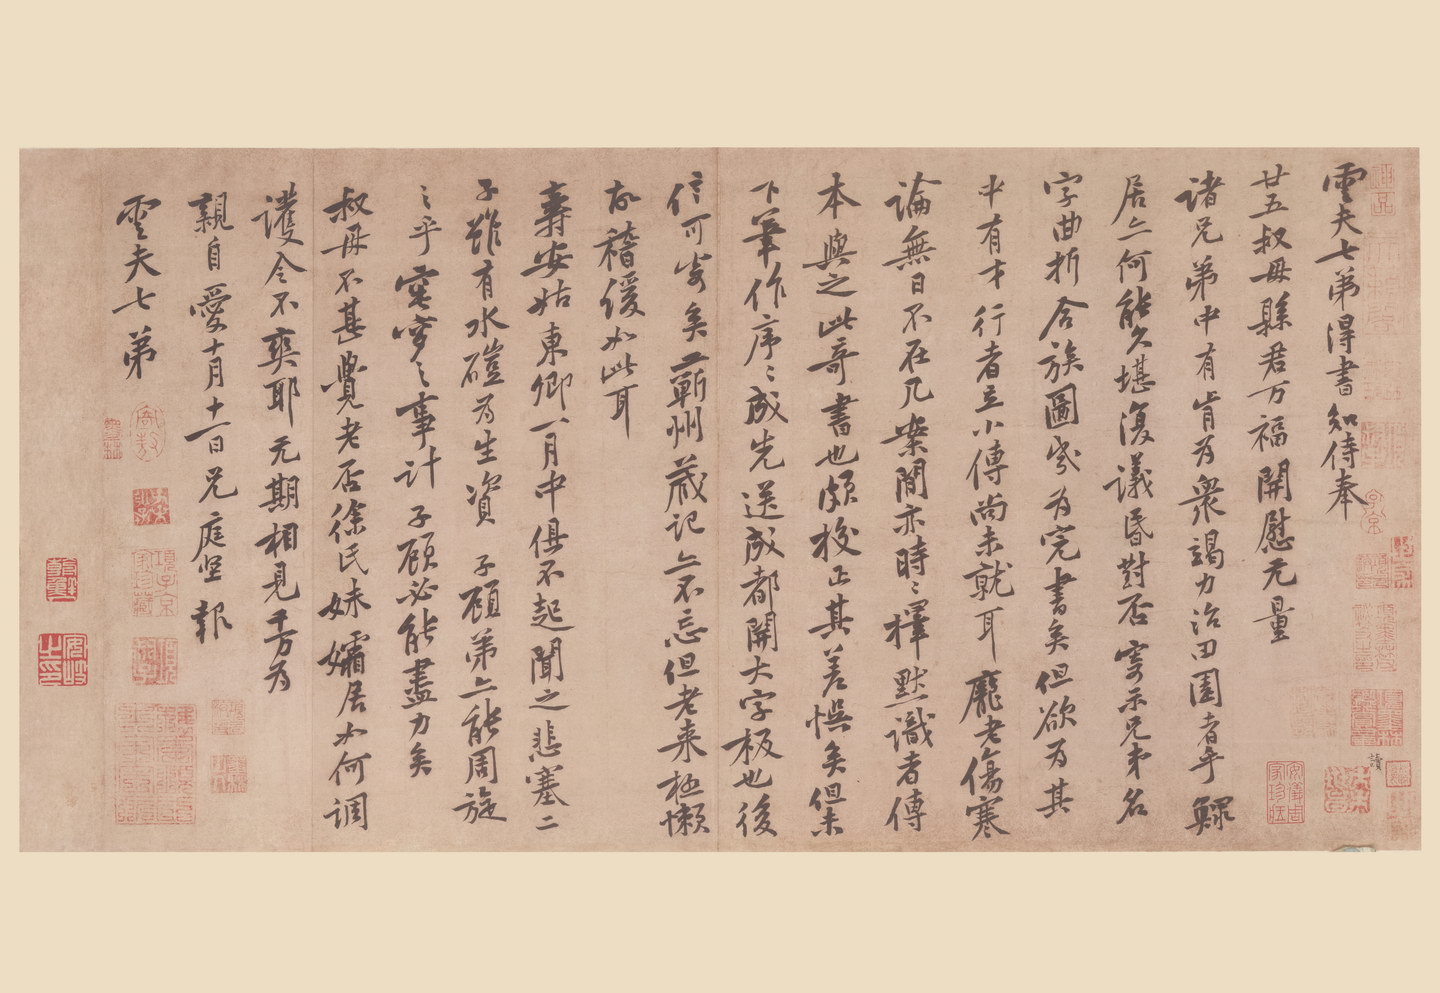 雲夫七弟得書知侍奉
廿五叔母縣君万福開慰无量
諸兄弟中有肯為衆竭力治田園者乎鰥
居亦何能久堪復議昏對否寄示兄弟名
字曲折合族圖岁為完書矣但欲為其
中有才行者立小傳尚未就耳龐老傷寒
論無日不在几案間亦時〻擇默識者傳
本與之此奇書也頗校正其差悮矣但未
下筆作序〻成先送成都開大字板也後
信可寄矣蘄州藏記亦不忘但老来極懶
故稽緩如此耳
壽安姑東卿一月中俱不起聞之悲塞二
子雖有水磑為生資子顧弟亦能周旋
之乎窀穸之事計子顧必能盡力矣
叔母不甚覺老否徐氏妹孀居如何調
護令不爽耶无期相見千万為
親自愛十月十一日兄庭坚報
雲夫七弟
項子京家珍藏
安儀周家珍藏
子京